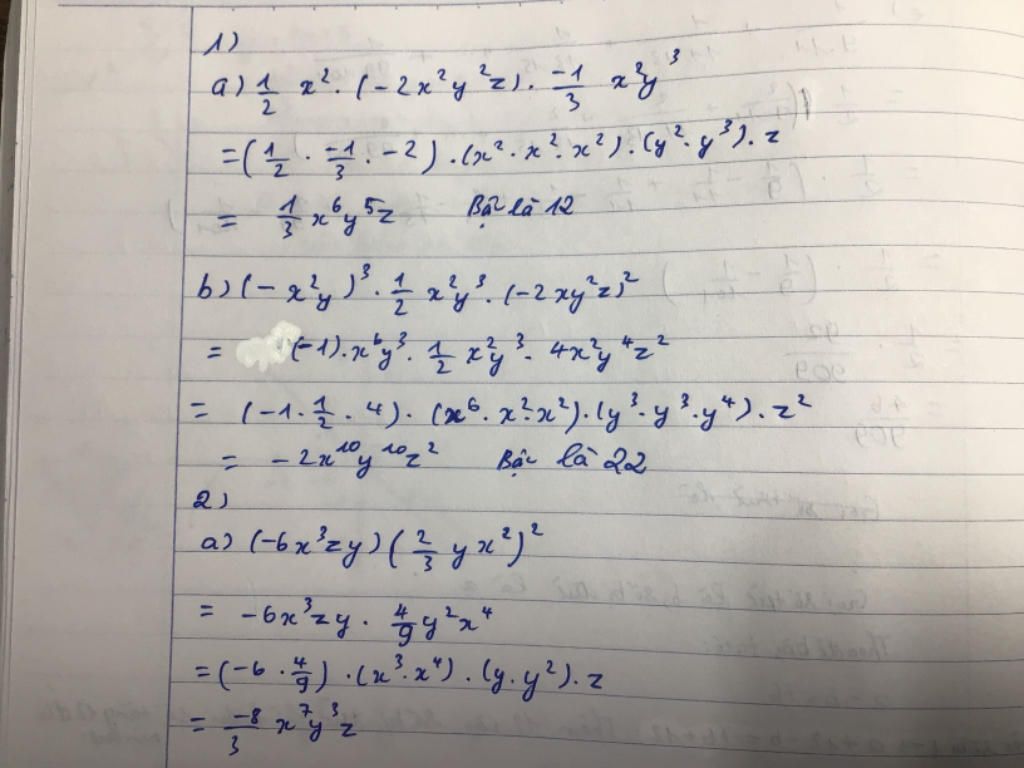 1)
a) 1/2 x². (-2x²y²z). -1/3 x²y³
= (1/2 . -1/3 . -2) . (x² . x² . x²) . (y² . y³) . z
= 1/3 x⁶y⁵z Bậc là 12
b) (- x²y)³ . 1/2 x²y³ . (-2xy²z)²
= (-1). x⁶y³ . 1/2 x²y³ . 4x²y⁴z²
= (-1 . 1/2 . 4) . (x⁶ . x² . x²) . (y³ . y³ . y⁴) . z²
= -2x¹⁰y¹⁰z² Bậc là 22
2)
a) (-6x³zy) (2/3 yx²)²
= -6x³zy . 4/9 y²x⁴
= (-6 . 4/9) . (x³ . x⁴) . (y . y²) . z
= -8/3 x⁷y³z